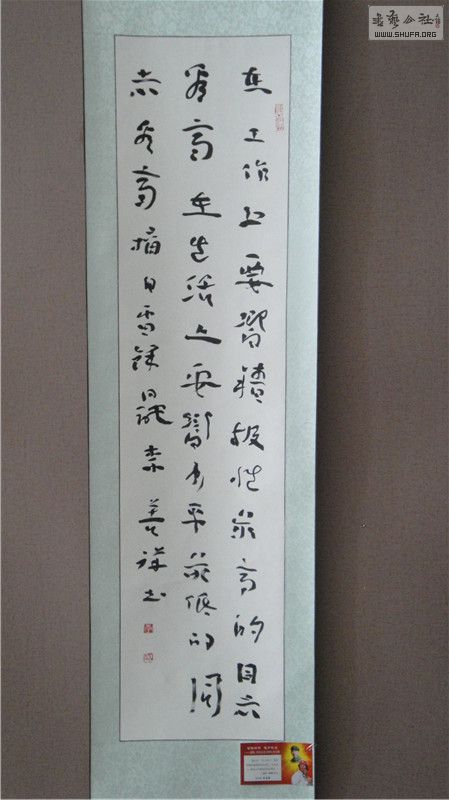 書藝公社
WWW.SHUFA.ORG
在工作上要嚮積極性最高的同志
看齊在生活上要嚮水平最低的同
志看齊摘自雷鋒日記善祥書